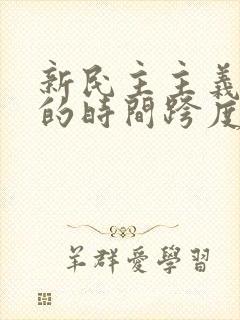 新民主主義
的時間跨度
羊群愛學習